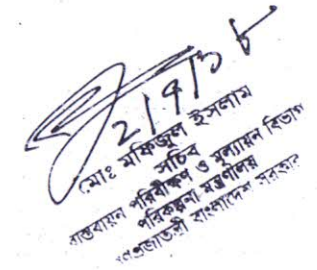 2/9/১৮
মোঃ মফিজুল ইসলাম
সচিব
বাস্তবায়ন পরিবীক্ষণ ও মূল্যায়ন বিভাগ
পরিকল্পনা মন্ত্রণালয়
গণপ্রজাতন্ত্রী বাংলাদেশ সরকার